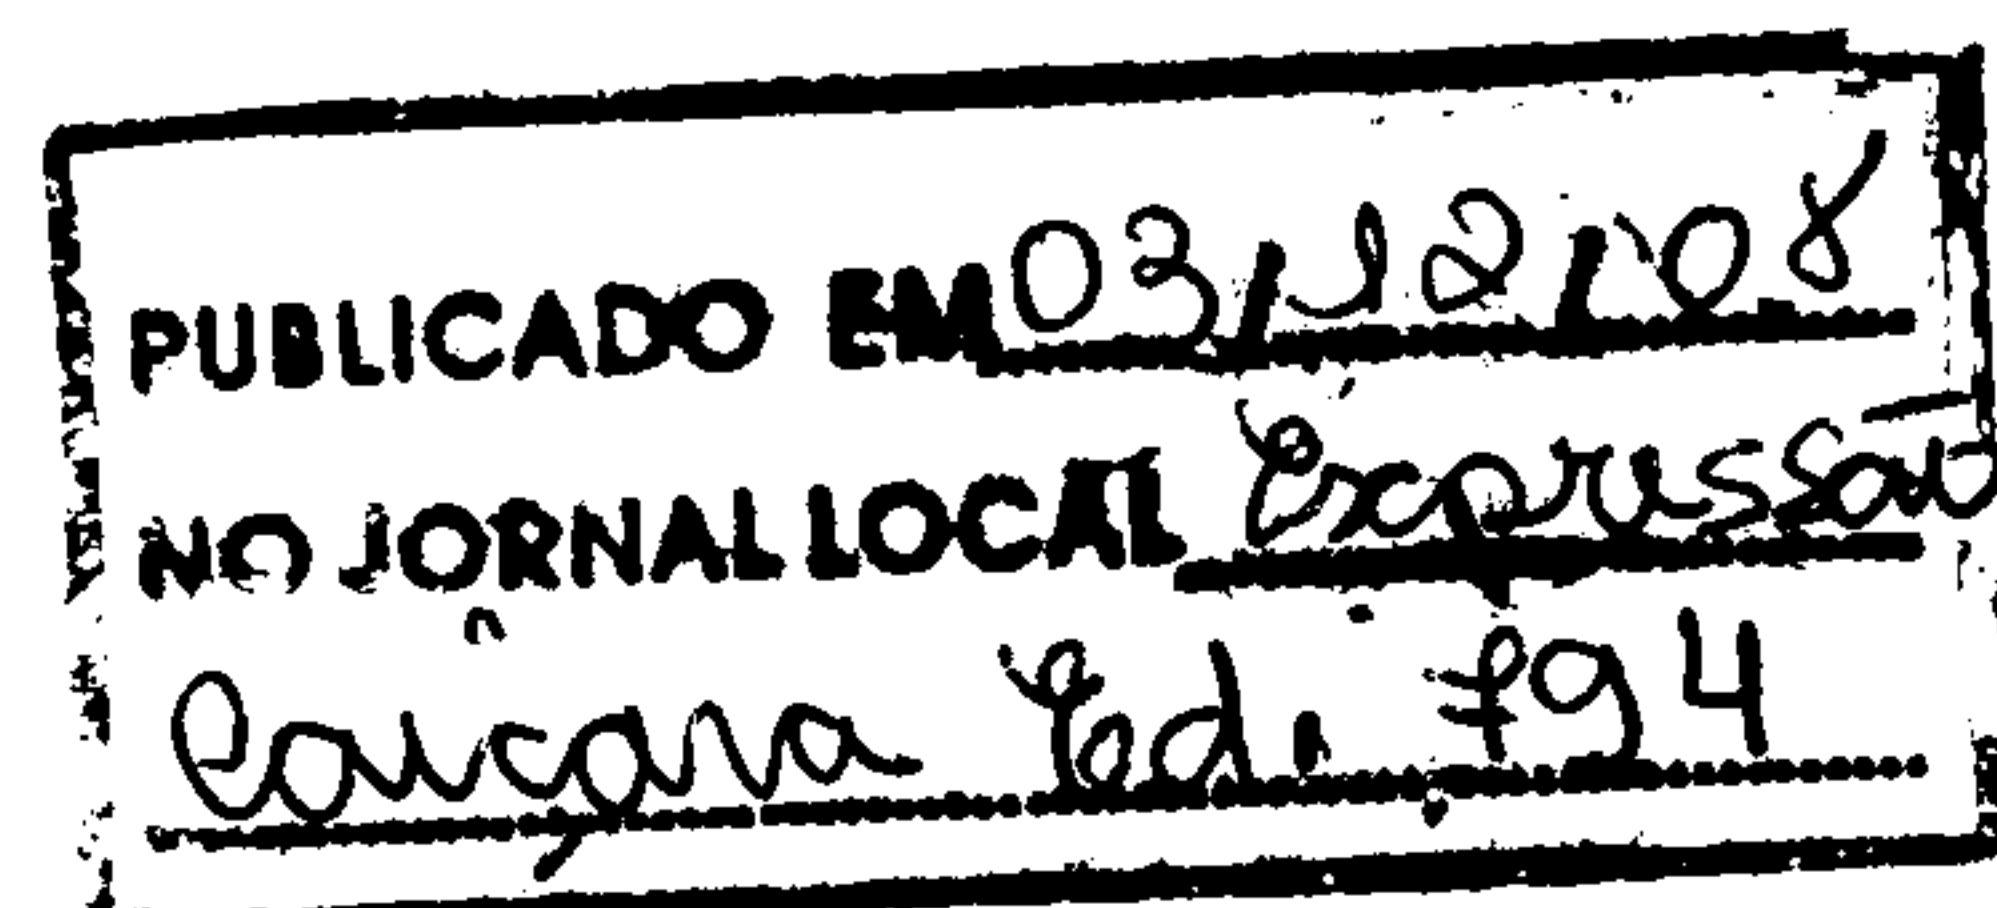 PUBLICADO EM 03/12/08
NO JORNAL LOCAL Expressão
Caiçara Ed. 794